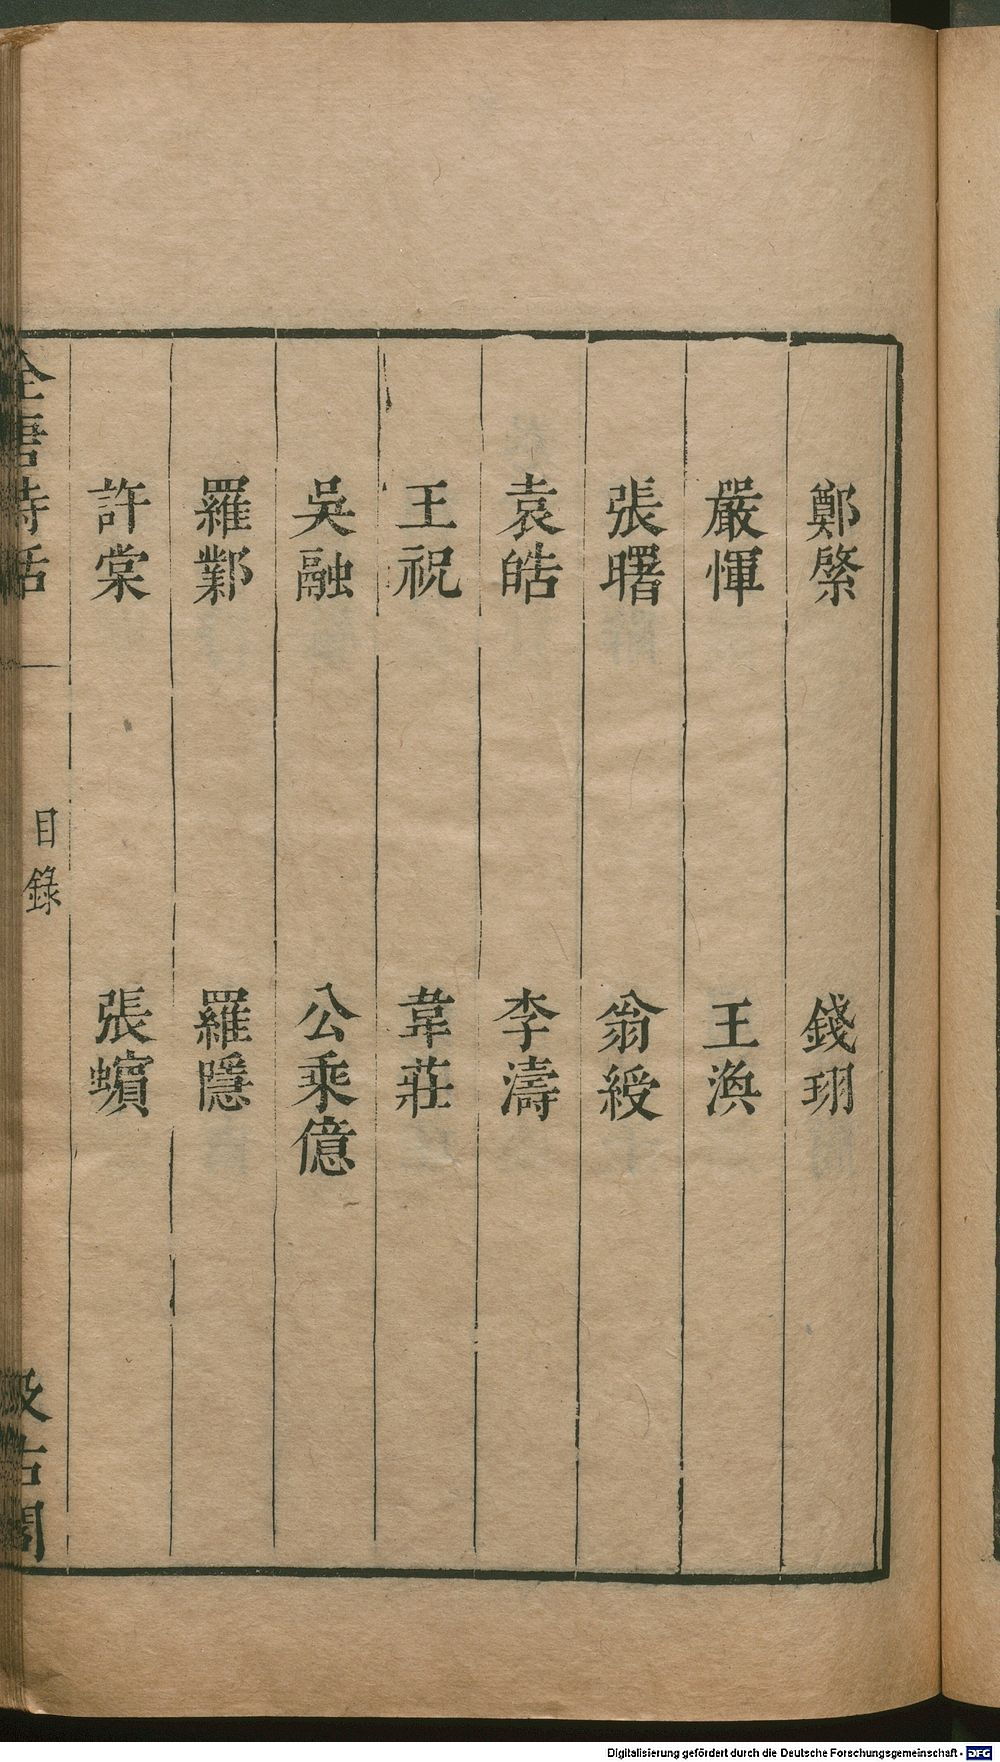 鄭綮 錢珝
嚴惲 王渙
張曙 翁綬
袁皓 李濤
王祝 韋莊
吳融 公乘億
羅鄴 羅隱
許棠 張蠙
全唐詩話 目錄 汲古閣
Digitalisierung gefördert durch die Deutsche Forschungsgemeinschaft - DFG